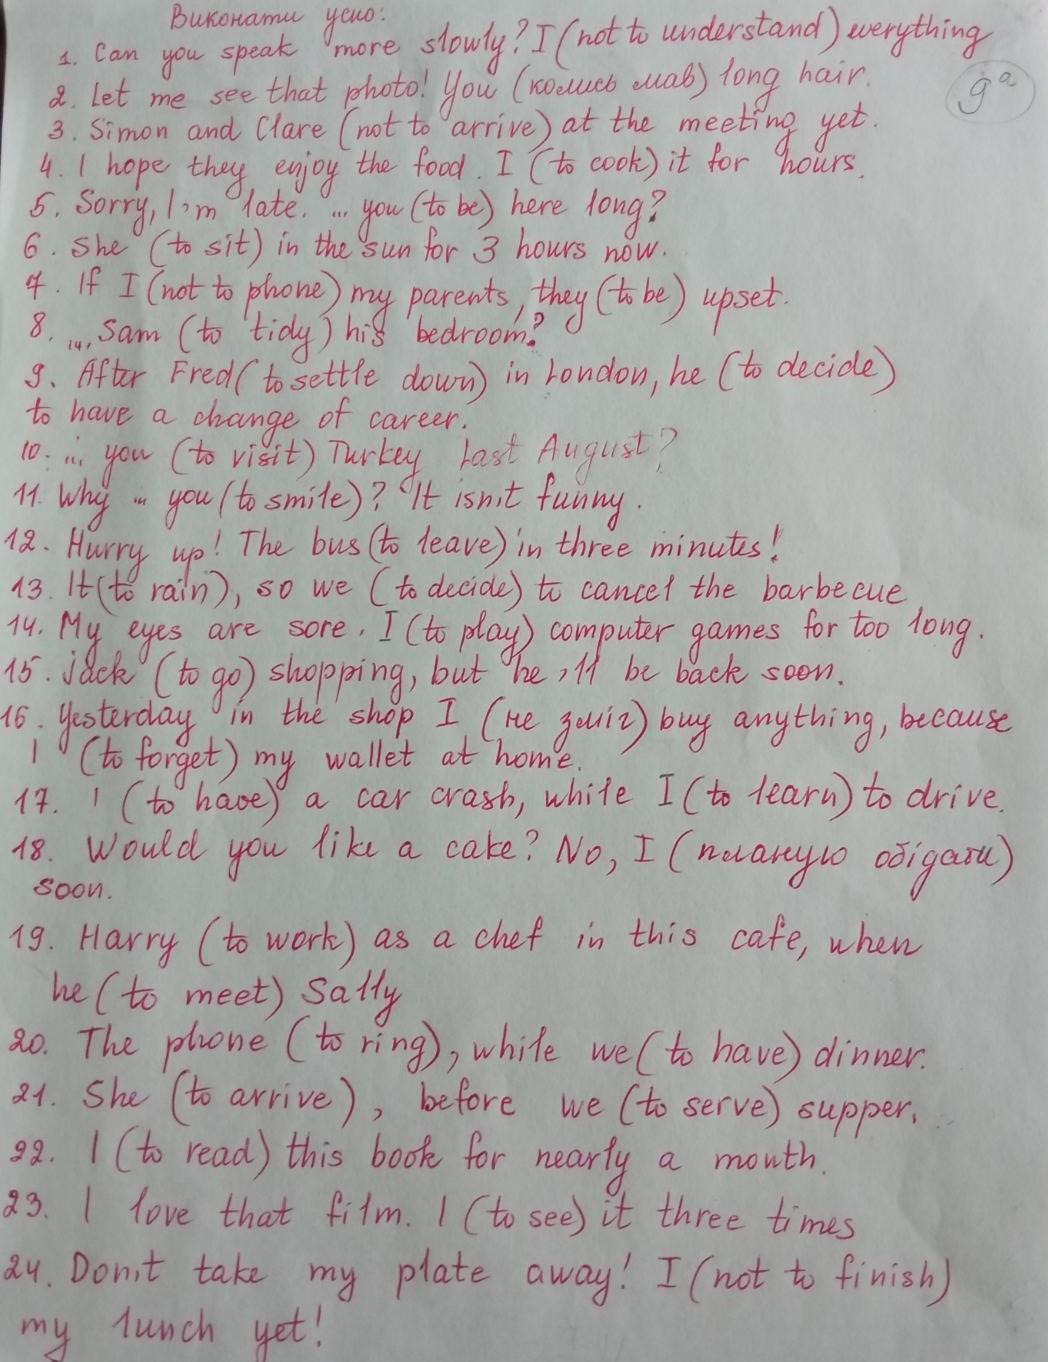 Виконати усно:
1. Can you speak more slowly? I (not to understand) everything
9ª
2. Let me see that photo! You (колись мав) long hair.
3. Simon and Clare (not to arrive) at the meeting yet.
4. I hope they enjoy the food. I (to cook) it for hours.
5. Sorry, I'm late. ... you (to be) here long?
6. She (to sit) in the sun for 3 hours now.
7. If I (not to phone) my parents, they (to be) upset.
8. ... Sam (to tidy) his bedroom?
9. After Fred (to settle down) in London, he (to decide)
to have a change of career.
10. ... you (to visit) Turkey last August?
11. Why ... you (to smile)? It isn't funny.
12. Hurry up! The bus (to leave) in three minutes!
13. It (to rain), so we (to decide) to cancel the barbecue
14. My eyes are sore. I (to play) computer games for too long.
15. Jack (to go) shopping, but he'll be back soon.
16. Yesterday in the shop I (не зміг) buy anything, because
I (to forget) my wallet at home.
17. I (to have) a car crash, while I (to learn) to drive.
18. Would you like a cake? No, I (планую обідати)
soon.
19. Harry (to work) as a chef in this cafe, when
he (to meet) Sally
20. The phone (to ring), while we (to have) dinner.
21. She (to arrive), before we (to serve) supper.
22. I (to read) this book for nearly a month.
23. I love that film. I (to see) it three times
24. Don't take my plate away! I (not to finish)
my lunch yet!